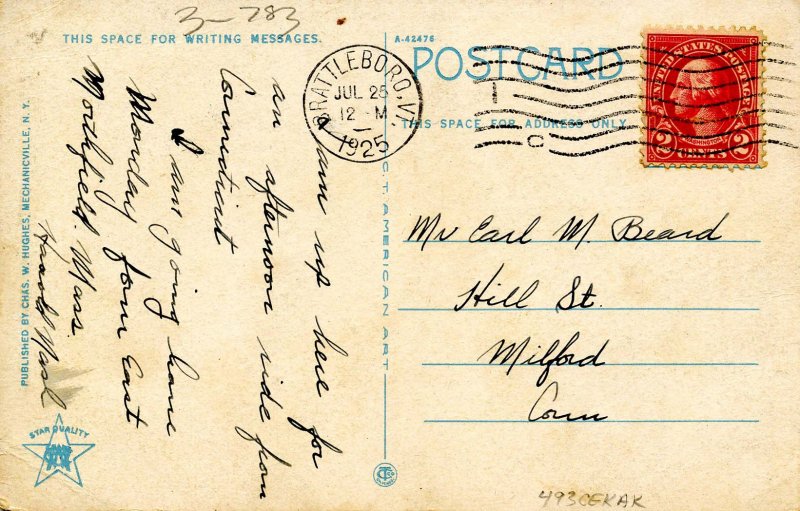 3-783
THIS SPACE FOR WRITING MESSAGES.
A-42476
POSTCARD
THIS SPACE FOR ADDRESS ONLY
BRATTLEBORO, VT
JUL 25
12 - M
1925
UNITED STATES POSTAGE
WASHINGTON
2 CENTS 2
I am up here for
an afternoon ride from
Connecticut
I am going home
Monday from East
Northfield. Mass.
Harold Nash
Mr Earl M. Beard
Hill St.
Milford
Conn
C.T. AMERICAN ART
PUBLISHED BY CHAS. W. HUGHES, MECHANICVILLE, N. Y.
STAR QUALITY
493CEKAK